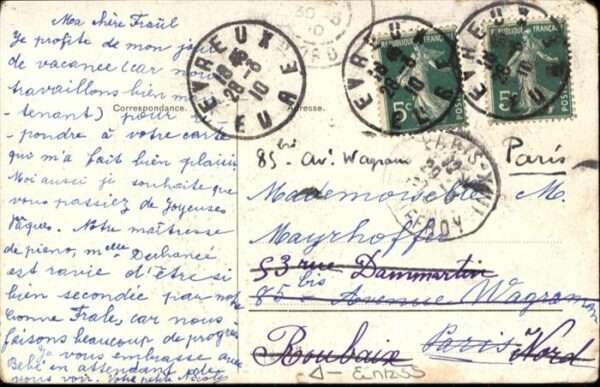 Ma chère Fraül
Je profite de mon jour
de vacance (car nous
travaillons bien main
-tenant) pour ré
-pondre à votre carte
qui m'a fait bien plaisir
Moi aussi je souhaite que
vous passiez de Joyeuses
Pâques. Notre maîtresse
de piano, melle
est ravie d'être si
bien secondée par notre
bonne Frale, car nous
faisons beaucoup de progrès
Je vous embrasse
Bébé en attendant de
vous voir. Votre petite
Correspondance.
Adresse.
EVREUX
28 - 6
10
EURE
REPUBLIQUE FRANÇAISE
5c
POSTES
EVREUX
28 - 6
10
EURE
REPUBLIQUE FRANÇAISE
5c
POSTES
EVREUX
28 - 6
10
EURE
PARIS-XVII
85 bis av. Wagram
Paris
Mademoiselle M.
Mayrhoffer
53 rue Dammartin
85 bis Avenue Wagram
Roubaix
Paris Nord